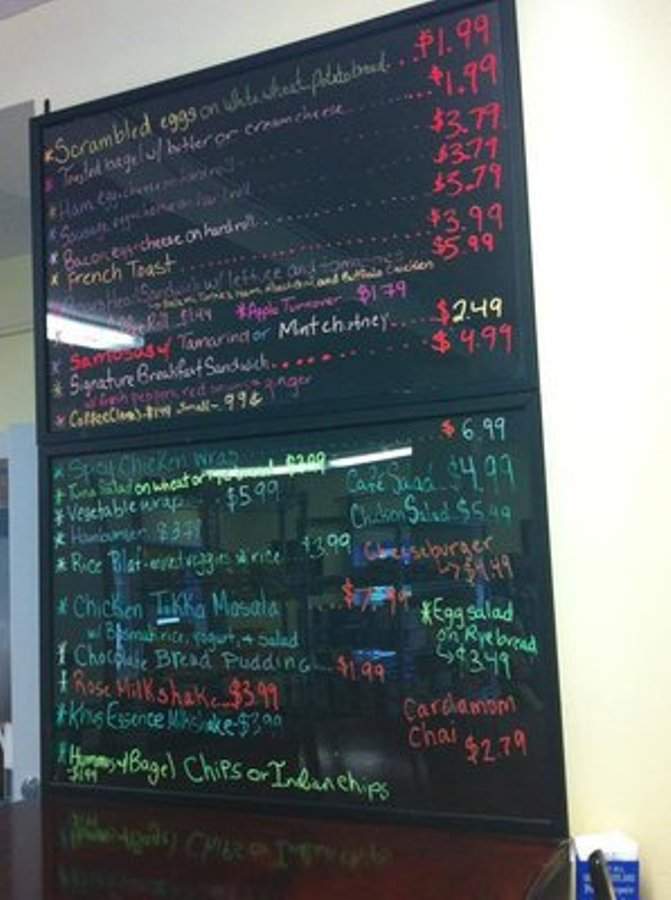 *Scrambled eggs on white wheat, potato bread...$1.99
Toasted bagel w/ butter or cream cheese.......$1.99
*Ham egg+cheese on hard roll........$3.79
*Sausage egg+cheese on hard roll $3.79
*Bacon egg+cheese on hard roll........$3.79
*French Toast.......$3.99
Sandwich w/ lettuce and tomatoes $5.99
and Buffalo Chicken
Roll $1.49 *Apple Turnover $1.79
*Samosas w/ Tamarind or Mint chutney....$2.49
*Signature Breakfast Sandwich........$4.99
w/ fresh peppers, red onions + ginger
*Coffee $1.49 small- 99¢
*Spicy Chicken Wrap..........$6.99
*Tuna Salad on wheat or $3.99
Cafe Salad...$4.99
*Vegetable wrap......$5.99
Chicken Salad $5.49
*Hamburger $3.79
*Rice Plat-mixed veggies w rice $3.99
Cheeseburger
↳$4.49
*Chicken Tikka Masala....$7.99
w/ Basmati rice, yogurt, + salad
*Egg salad
on Rye bread
↳$3.49
*Chocolate Bread Pudding...$1.99
*Rose Milkshake...$3.99
*Khus Essence Milkshake-$3.99
Cardamom
Chai $2.79
*Hummus w/Bagel Chips or Indian chips
$1.99